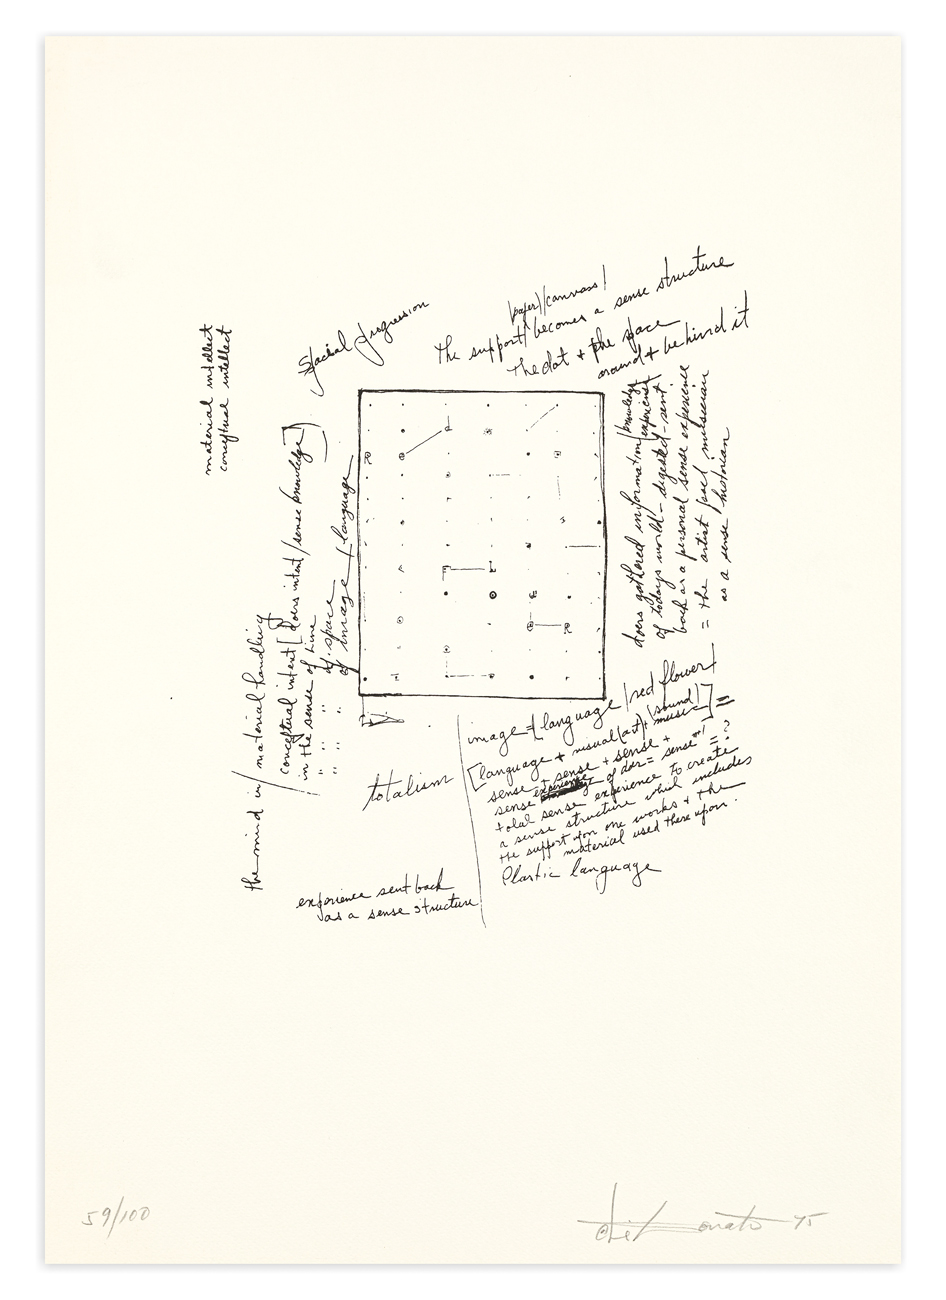 material intellect
conceptual intellect
Spacial progression
|paper|canvass|
the support becomes a sense structure
the dot + the space
around + behind it
doers gathered information/knowledge
of todays world - digested - sent
experience
back as a personal sense experience
= the artist poet musician
as a sense historian
the mind in/material handling
conceptual intent [doers intent/sense knowledge]
in the sense of line
" " of space
" " of image + language
image = [language/red flower]
[language + visual (art) + music] =
sound
sense + sense + sense +
sense experience of doer = sense = ?
total sense experience to create
a sense structure which includes
the support upon one works + the
material used there upon.
Plastic language
totalism
experience sent back
as a sense structure
59/100
75